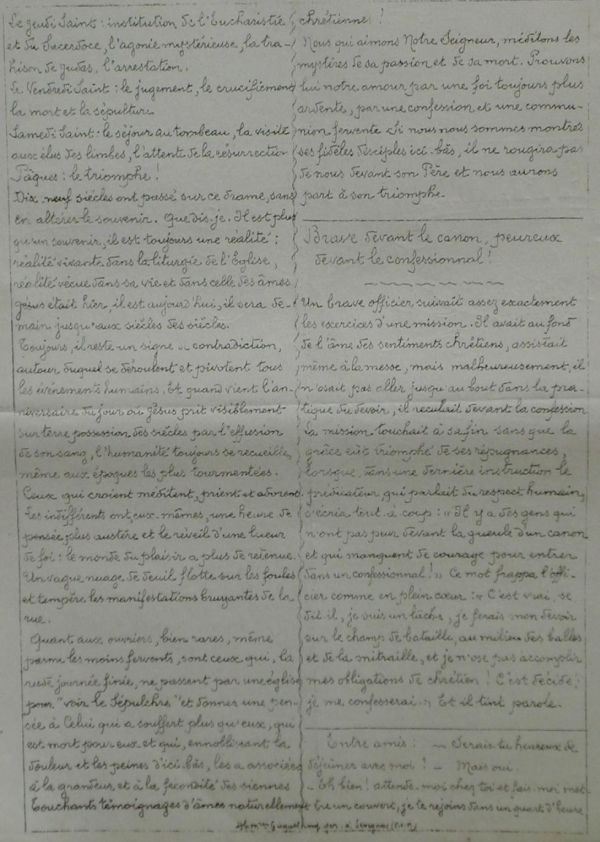 Le Jeudi Saint : institution de l'Eucharistie
et du Sacerdoce, l'agonie mystérieuse, la tra-
hison de Judas, l'arrestation.
Le Vendredi Saint : le jugement, le crucifiement
la mort et la sépulture.
Samedi Saint : le séjour au tombeau, la visite
aux élus des limbes, l'attente de la résurrection
Pâques : le triomphe !
Dix-neuf siècles ont passé sur ce drame, sans
en altérer le souvenir. Que dis-je. Il est plus
qu'un souvenir, il est toujours une réalité :
réalité vivante dans la liturgie de l'Eglise,
réalité vécue dans sa vie et dans celle des âmes
Jésus était hier, il est aujourd'hui, il sera de-
main jusqu'aux siècles des siècles.
Toujours, il reste un signe de contradiction,
autour duquel se déroulent et pivotent tous
les événements humains. Et quand vient l'an-
niversaire du jour où Jésus prit visiblement
sur terre possession des siècles par l'effusion
de son sang, l'humanité toujours se recueille,
même aux époques les plus tourmentées.
Ceux qui croient méditent, prient et adorent
Les indifférents ont, eux-mêmes, une heure de
pensée plus austère et le réveil d'une lueur
de foi : le monde du plaisir a plus de retenue.
Un vague nuage de deuil flotte sur les foules
et tempère les manifestations bruyantes de la
rue.
Quant aux ouvriers, bien rares, même
parmi les moins fervents, sont ceux qui, la
rude journée finie, ne passent par une église
pour "voir le Sépulchre" et donner une pen-
sée à Celui qui a souffert plus qu'eux, qui
est mort pour eux et qui, ennoblissant la
douleur et les peines d'ici-bas, les a associées
à la grandeur et à la fécondité des siennes
Touchants témoignages d'âmes naturellement
chrétiennes !
Nous qui aimons Notre Seigneur, méditons les
mystères de sa passion et de sa mort. Prouvons
lui notre amour par une foi toujours plus
ardente, par une confession et une commu-
nion fervente. Si nous nous sommes montrés
ses fidèles disciples ici-bas, il ne rougira pas
de nous devant son Père et nous aurons
part à son triomphe.
Brave devant le canon, peureux
devant le confessionnal !
Un brave officier suivait assez exactement
les exercices d'une mission. Il avait au fond
de l'âme des sentiments chrétiens, assistait
même à la messe, mais malheureusement, il
n'osait pas aller jusqu'au bout dans la pra-
tique du devoir, il reculait devant la confession
La mission touchait à sa fin sans que la
grâce eût triomphé de ses répugnances,
lorsque dans une dernière instruction le
prédicateur qui parlait du respect humain,
s'écria tout à coup : "Il y a des gens qui
n'ont pas peur devant la gueule d'un canon
et qui manquent de courage pour entrer
dans un confessionnal !" Ce mot frappa l'offi-
cier comme en plein cœur : "C'est vrai, se
dit-il, je suis un lâche, je ferais mon devoir
sur le champ de bataille, au milieu des balles
et de la mitraille, et je n'ose pas accomplir
mes obligations de chrétien ! C'est décidé,
je me confesserai." Et il tint parole.
Entre amis : – Serais-tu heureux de
déjeuner avec moi ? – Mais oui.
– Eh bien ! attends-moi chez toi et fais-moi met-
tre un couvert, je te rejoins dans un quart d'heure